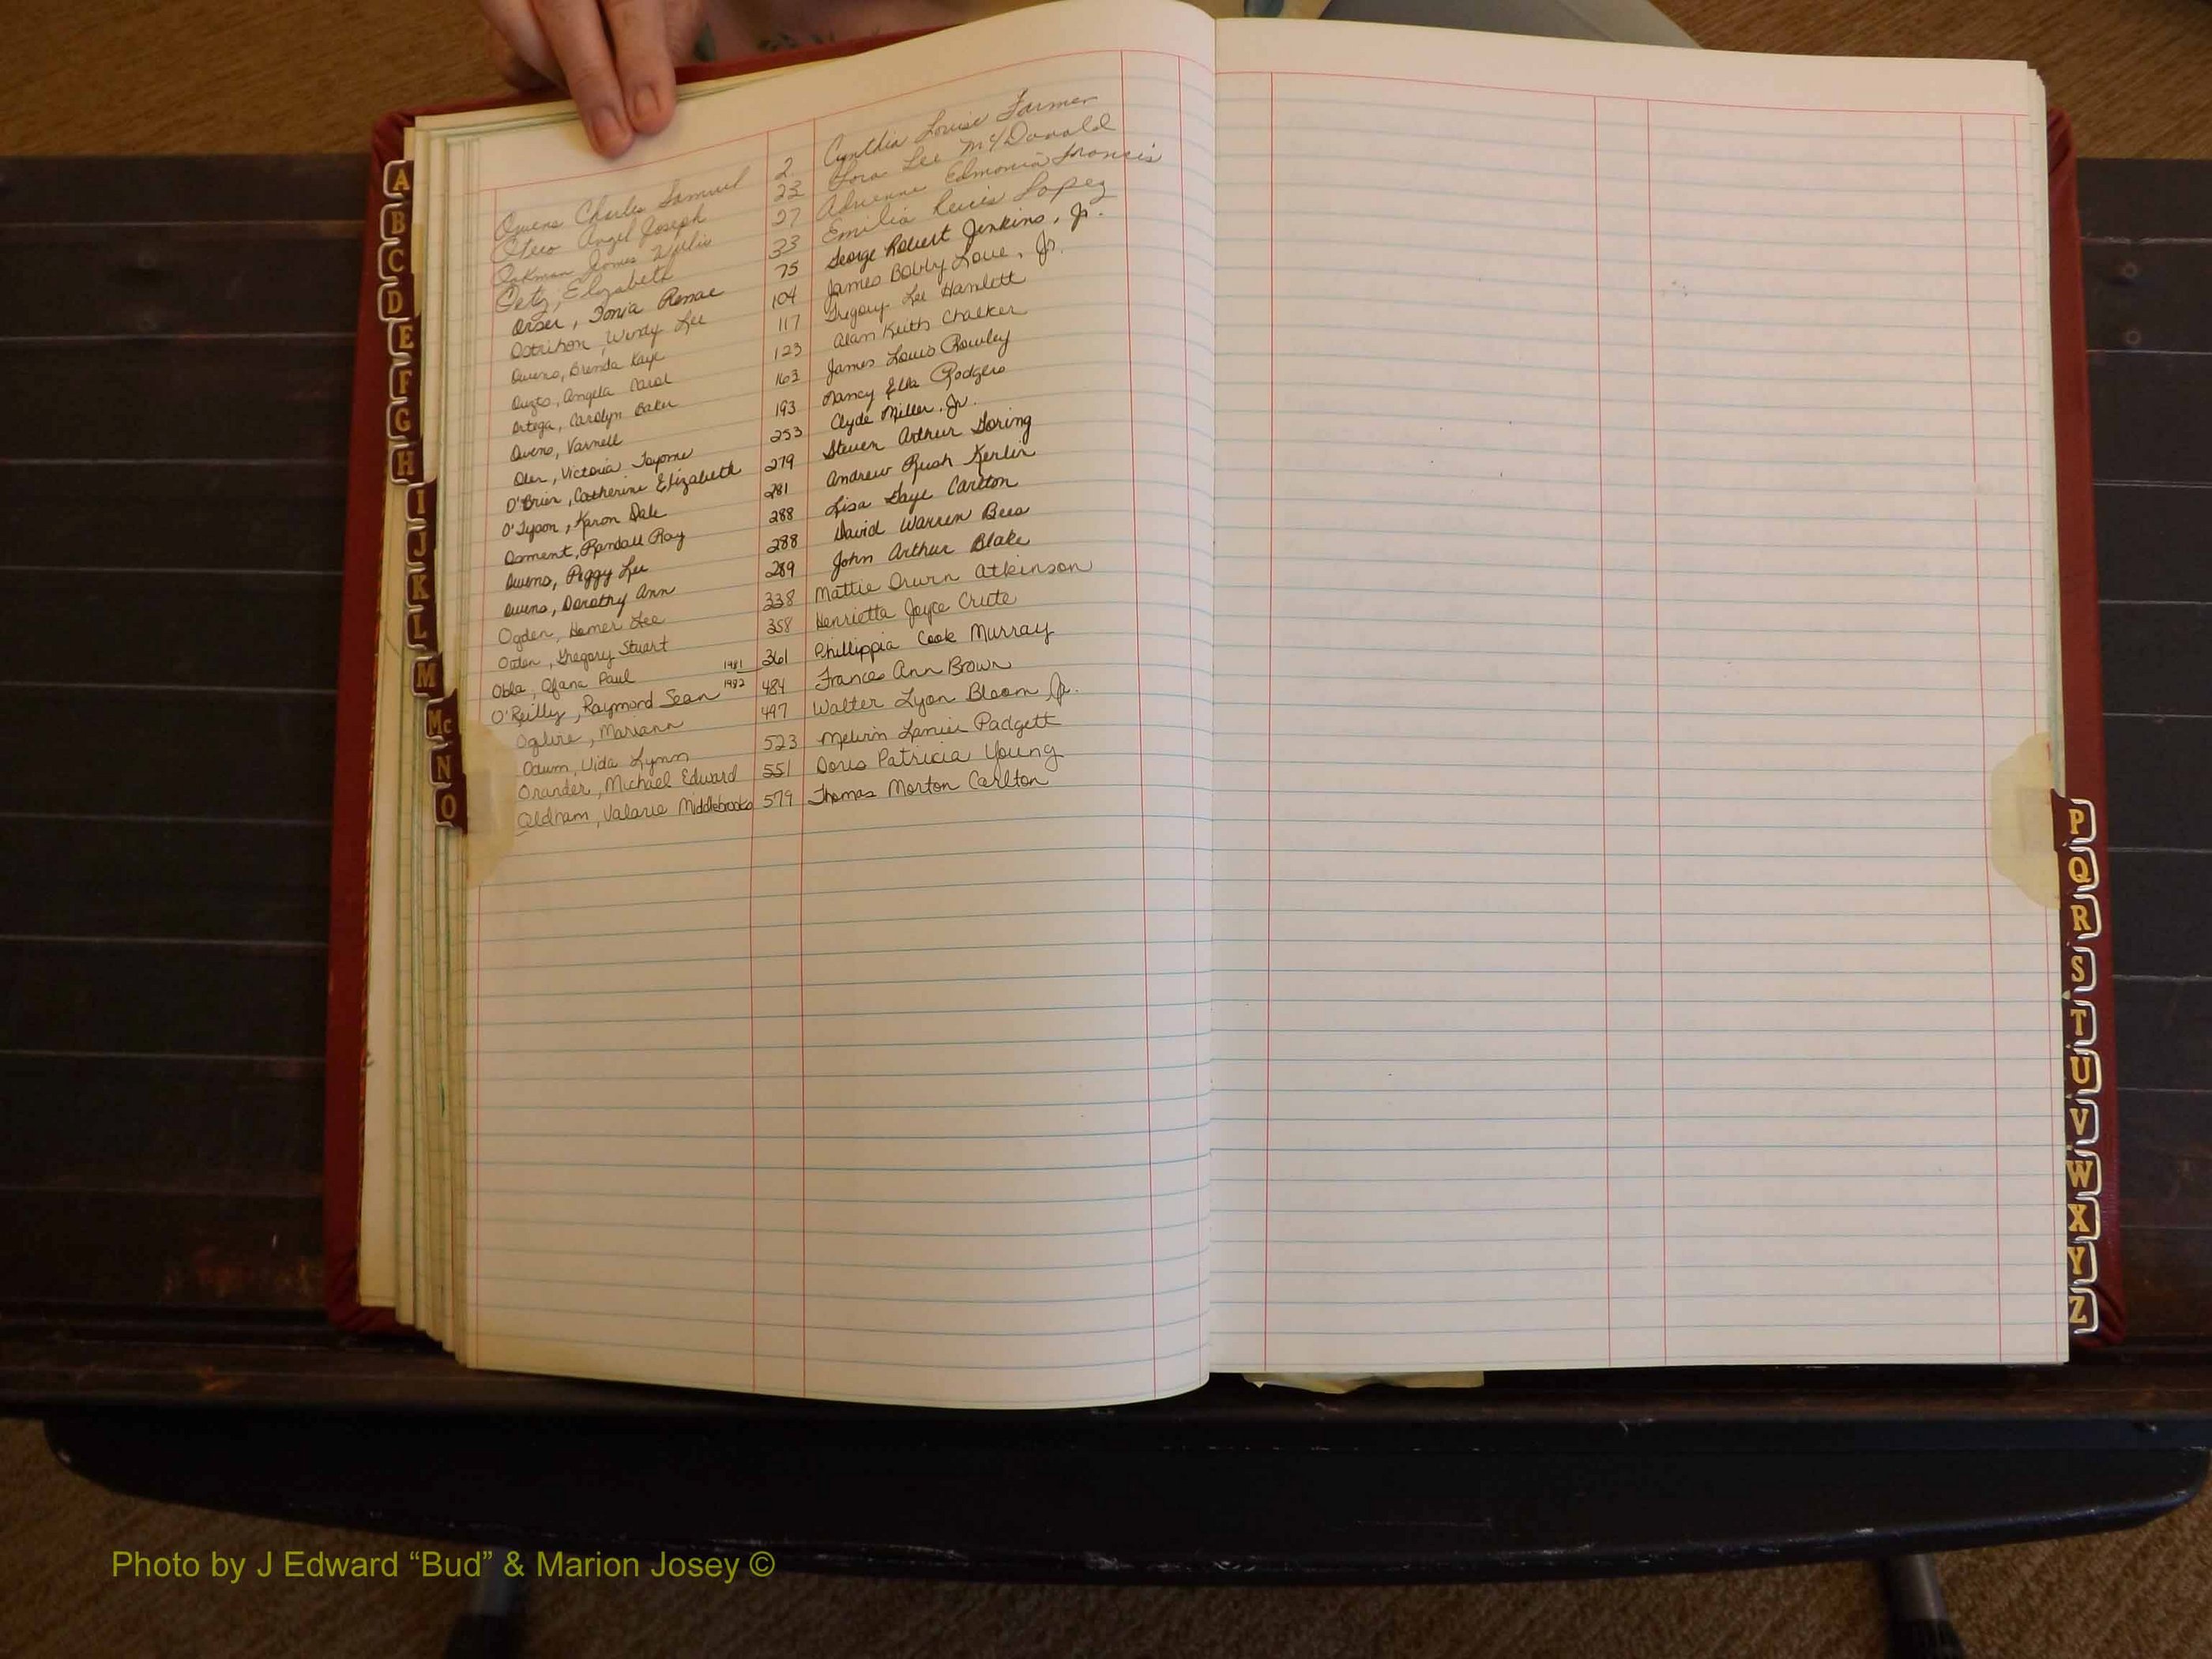 Owens Charles Samuel 2 Cynthia Louise Farmer
Otero Angel Joseph 23 Lora Lee McDonald
Oakman James Willis 27 Adrienne Edmonia Francis
Oetz, Elizabeth 33 Emilio Lopez
Orser, Tonia Renae 75 George Robert Jenkins, Jr.
Ostrihon, Windy Lee 104 James Bobby Love, Jr.
Owens, Brenda Kaye 117 Gregory Lee Hamlett
Ouzts, Angela Carol 123 Alan Keith Chalker
Ortega, Carolyn Baker 163 James Louis Rowley
Owens, Varnell 193 Nancy Ella Rodgers
Oler, Victoria 253 Clyde Miller, Jr.
O'Brien, Catherine Elizabeth 279 Steven Arthur Goring
O'Tyson, Karon Dale 281 Andrew Rush Kerlin
Osment, Randall Ray 288 Lisa Gaye Carlton
Owens, Peggy Lee 288 David Warren Bees
Owens, Dorothy Ann 289 John Arthur Blake
Ogden, Homer Lee 338 Mattie Orwin Atkinson
Oden, Gregory Stuart 358 Henrietta Joyce Crute
Obla, Ofana Paul 1981 361 Phillippia Cook Murray
O'Reilly, Raymond Sean 1982 484 Frances Ann Brown
Ogilvie, Mariann 497 Walter Lyon Bloom Jr.
Odum, Vida Lynn 523 Melvin Lanier Padgett
Orander, Michael Edward 551 Doris Patricia Young
Oldham, Valarie Middlebrooks 579 Thomas Morton Carlton
A
B
C
D
E
F
G
H
I
J
K
L
M
Mc
N
O
P
Q
R
S
T
U
V
W
X
Y
Z
Photo by J Edward “Bud” & Marion Josey ©